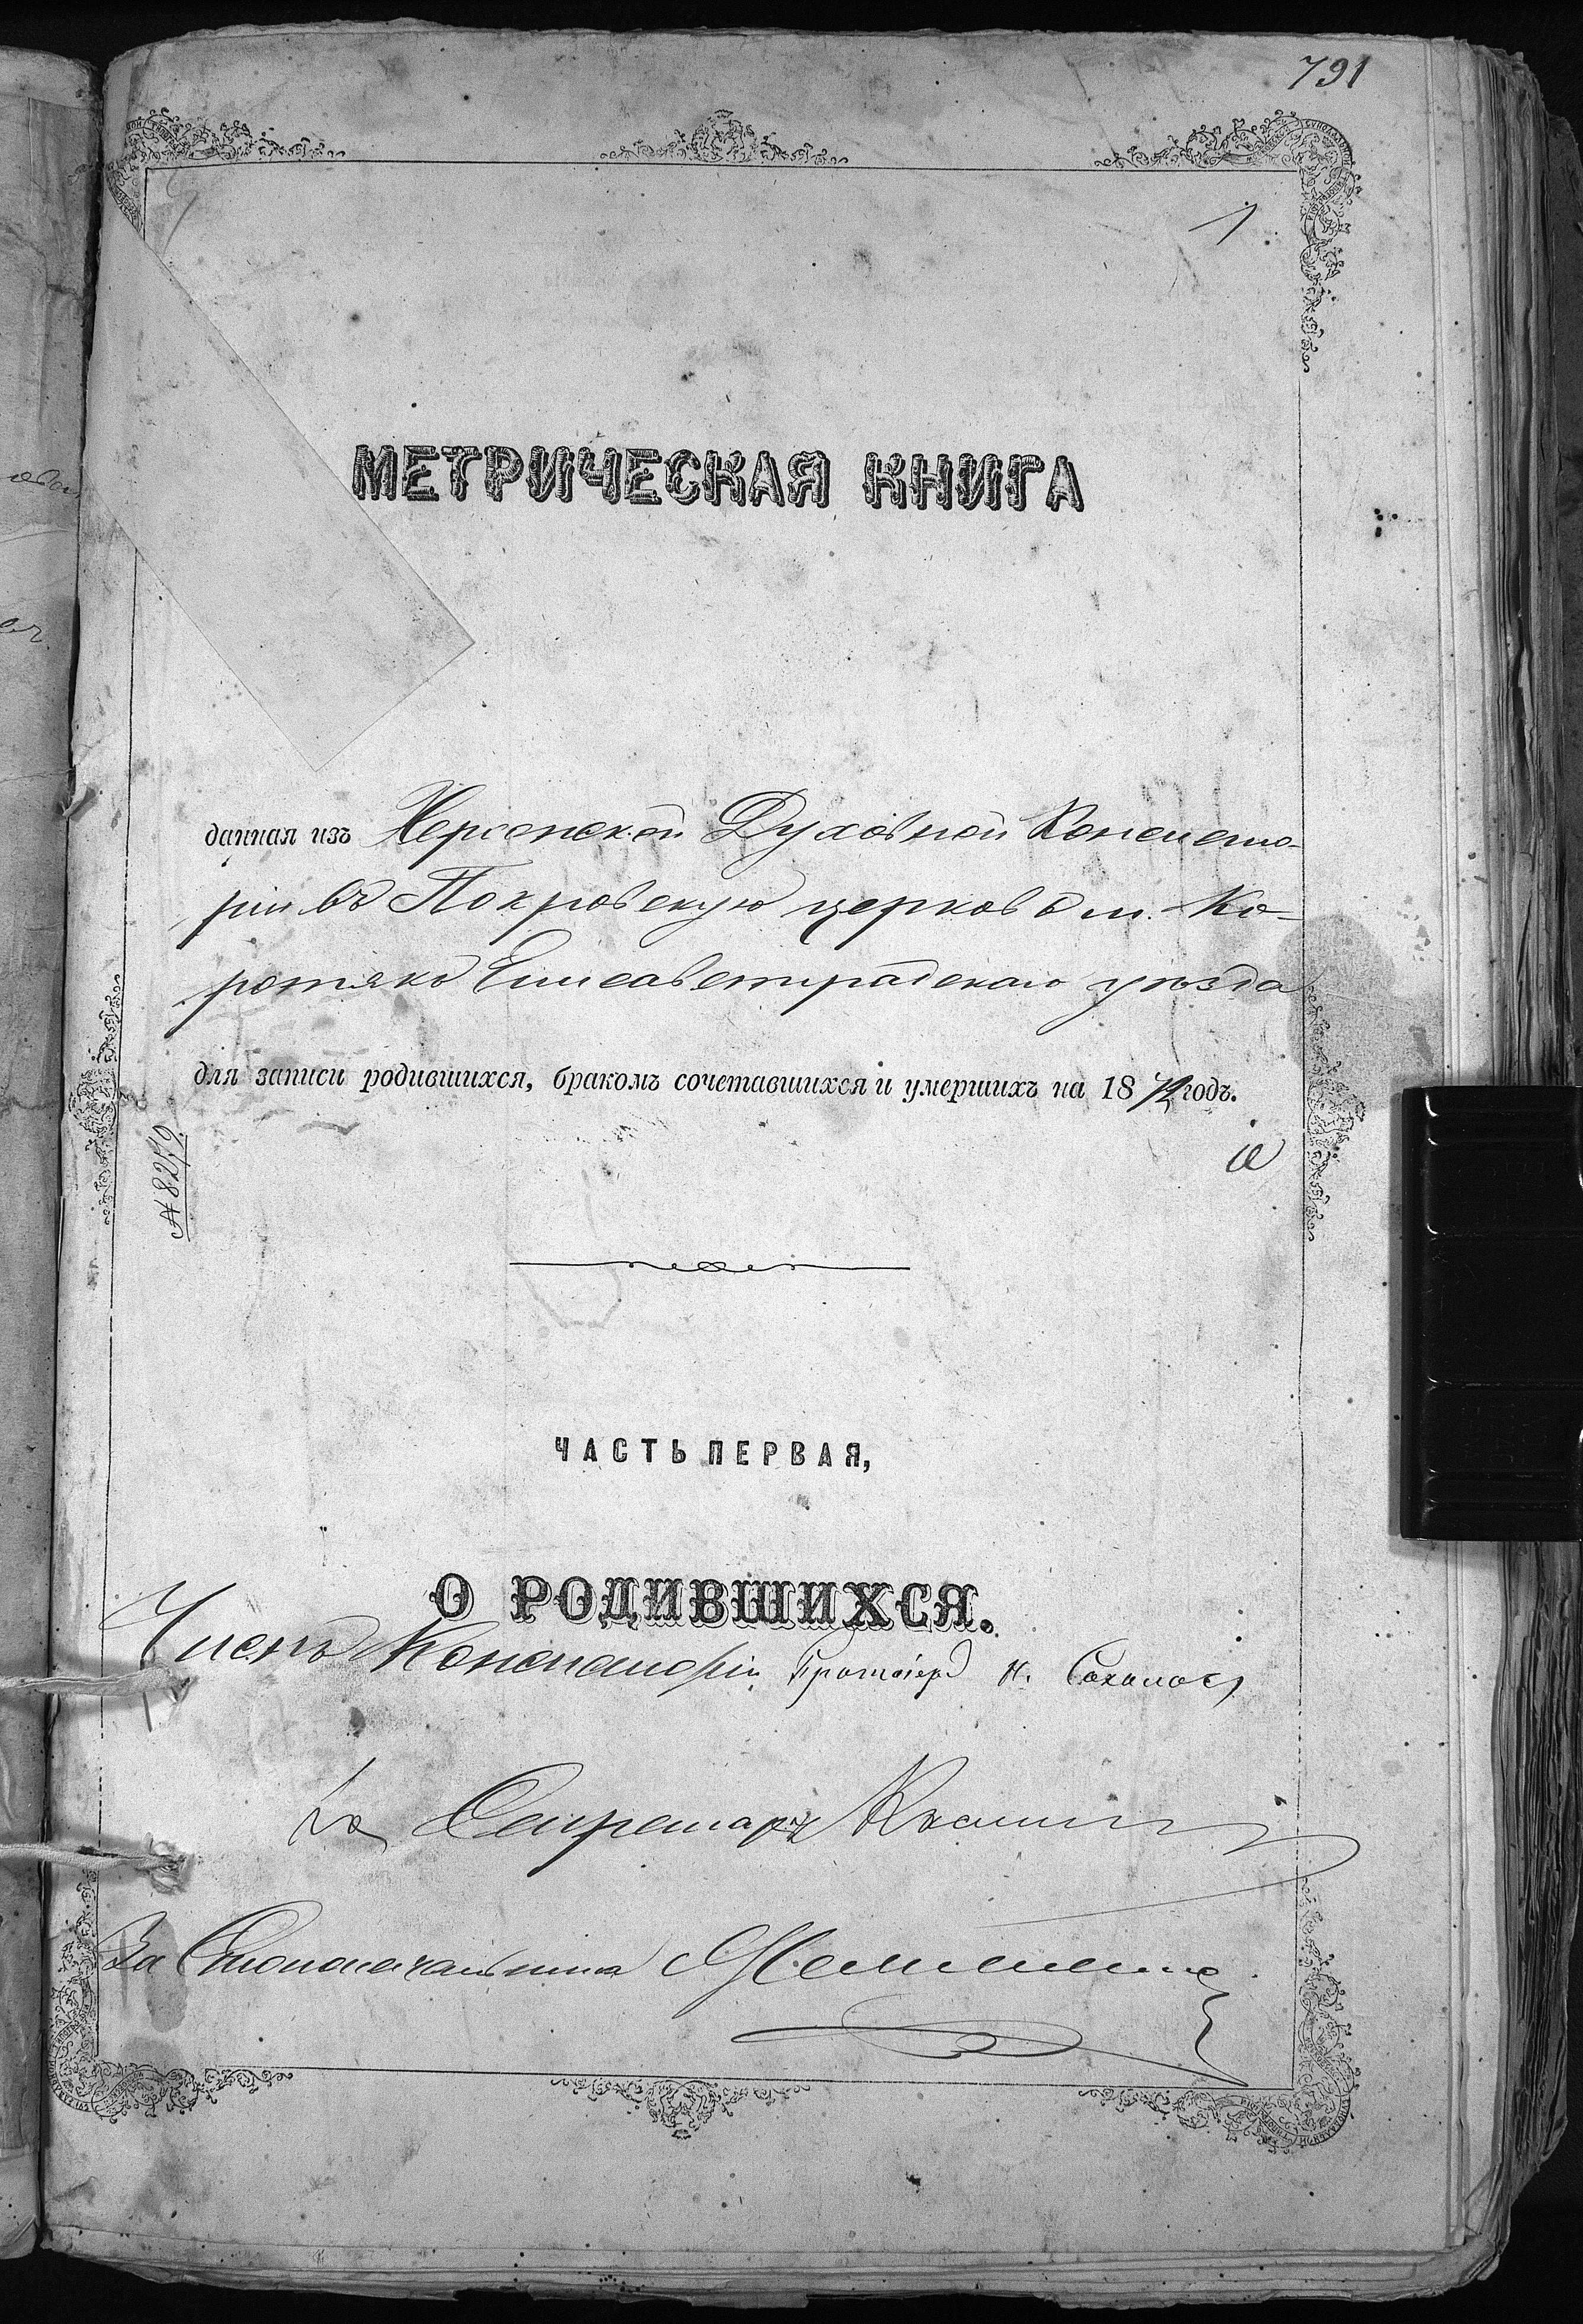 791
1
МЕТРИЧЕСКАЯ КНИГА
данная изъ Херсонской Духовной Консисто-
ріи въ Покровскую церковь м. Ко-
ротяка Елисаветградскаго уѣзда
для записи родившихся, бракомъ сочетавшихся и умершихъ на 1872 годъ.
№ 8279
ЧАСТЬ ПЕРВАЯ,
О РОДИВШИХСЯ.
Членъ Консисторіи Протоіерей Н. Соколовъ
Секретарь
За Столоначальника